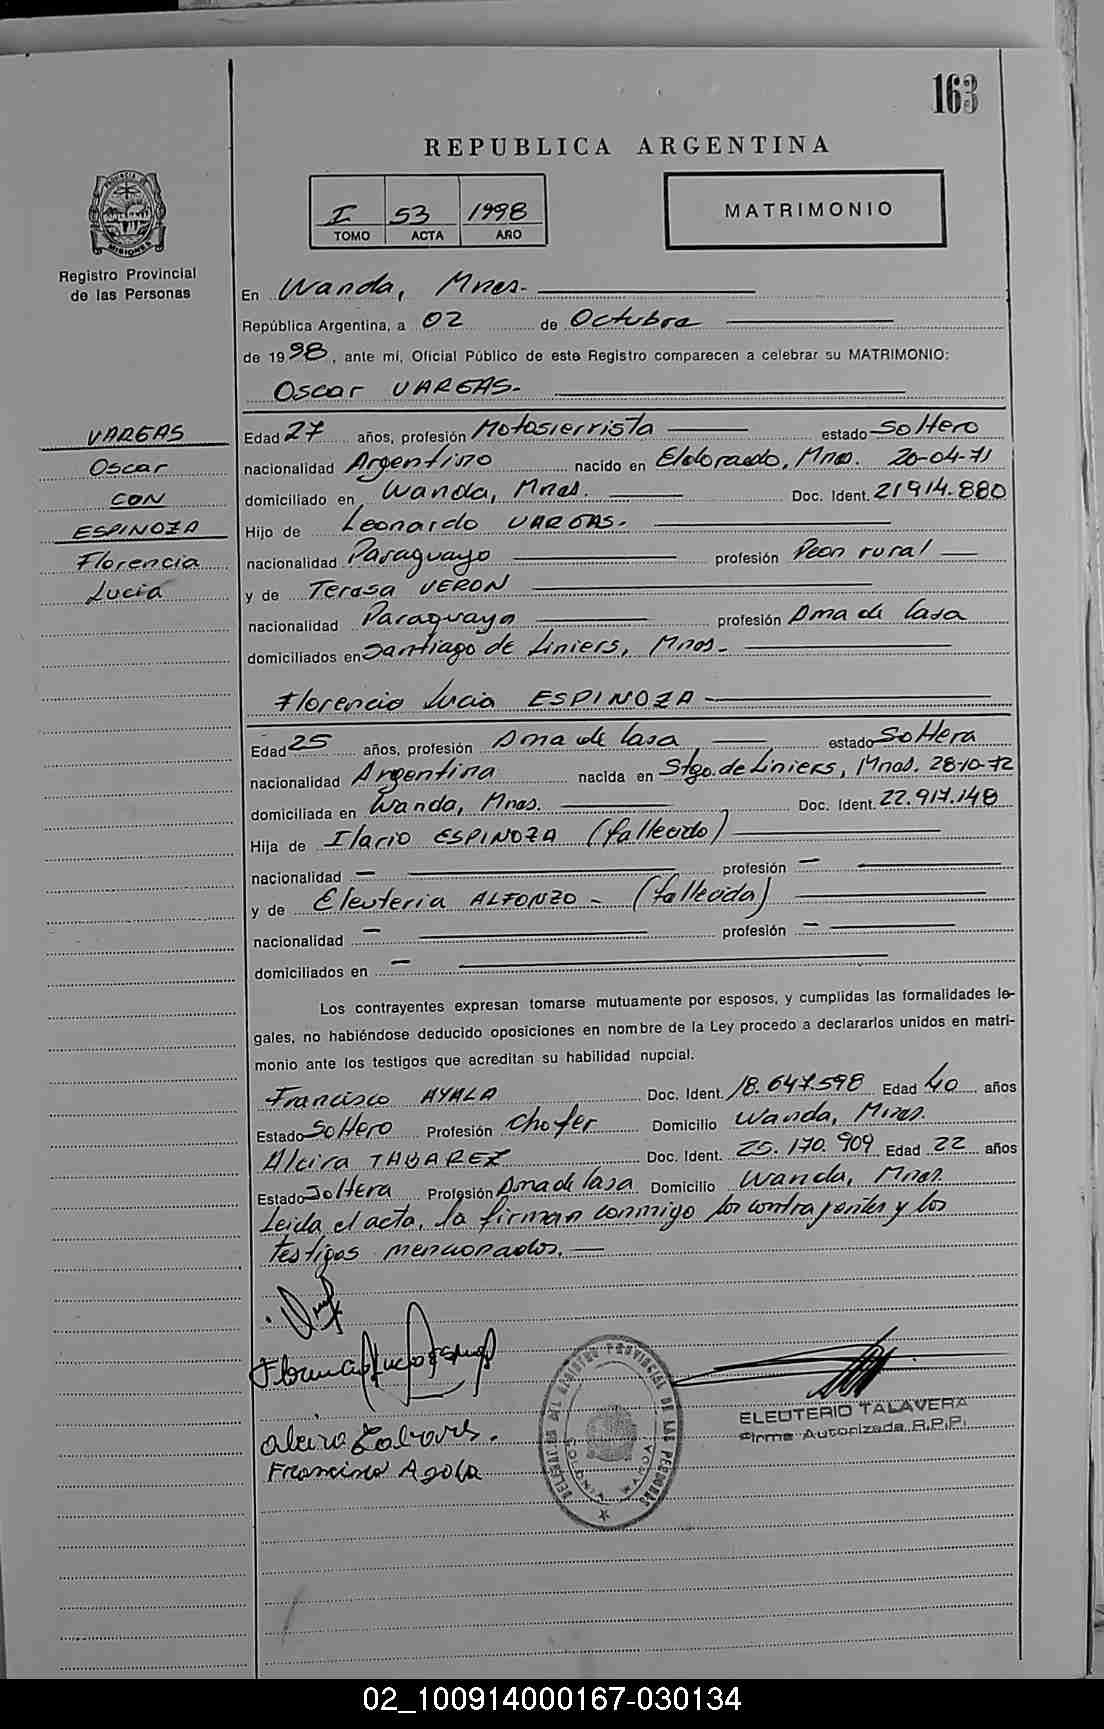 163
REPUBLICA ARGENTINA
I 53 1998
TOMO ACTA AÑO
MATRIMONIO
PROVINCIA DE
MISIONES
Registro Provincial
de las Personas
En Wanda, Mnes.
República Argentina, a 02 de Octubre
de 1998, ante mí, Oficial Público de este Registro comparecen a celebrar su MATRIMONIO:
Oscar VARGAS.-
VARGAS
Oscar
CON
ESPINOZA
Florencia
Lucia
Edad 27 años, profesión Motosierrista estado Soltero
nacionalidad Argentino nacido en Eldorado, Mnes. 20-04-71
domiciliado en Wanda, Mnes. Doc. Ident. 21914.880
Hijo de Leonardo VARGAS.
nacionalidad Paraguayo profesión Peon rural
y de Teresa VERON
nacionalidad Paraguaya profesión Ama de Casa
domiciliados en Santiago de Liniers, Mnes.
Florencia Lucia ESPINOZA
Edad 25 años, profesión Ama de Casa estado Soltera
nacionalidad Argentina nacida en Stgo. de Liniers, Mnes. 28-10-72
domiciliada en Wanda, Mnes. Doc. Ident. 22.917.148
Hija de Ilario ESPINOZA (fallecido)
nacionalidad — profesión —
y de Eleuteria ALFONZO - (fallecida)
nacionalidad — profesión —
domiciliados en —
Los contrayentes expresan tomarse mutuamente por esposos, y cumplidas las formalidades le-
gales, no habiéndose deducido oposiciones en nombre de la Ley procedo a declararlos unidos en matri-
monio ante los testigos que acreditan su habilidad nupcial.
Francisco AYALA Doc. Ident. 18.647.598 Edad 40 años
Estado Soltero Profesión Chofer Domicilio Wanda, Mnes.
Alcira TABAREZ Doc. Ident. 25.170.909 Edad 22 años
Estado Soltera Profesión Ama de Casa Domicilio Wanda, Mnes.
Leida el acta, la firman conmigo los contrayentes y los
testigos mencionados.
Francisco Ayala
ELEUTERIO TALAVERA
Firma Autorizada R.P.P.
REGISTRO PROVINCIAL DE LAS PERSONAS
02_100914000167-030134